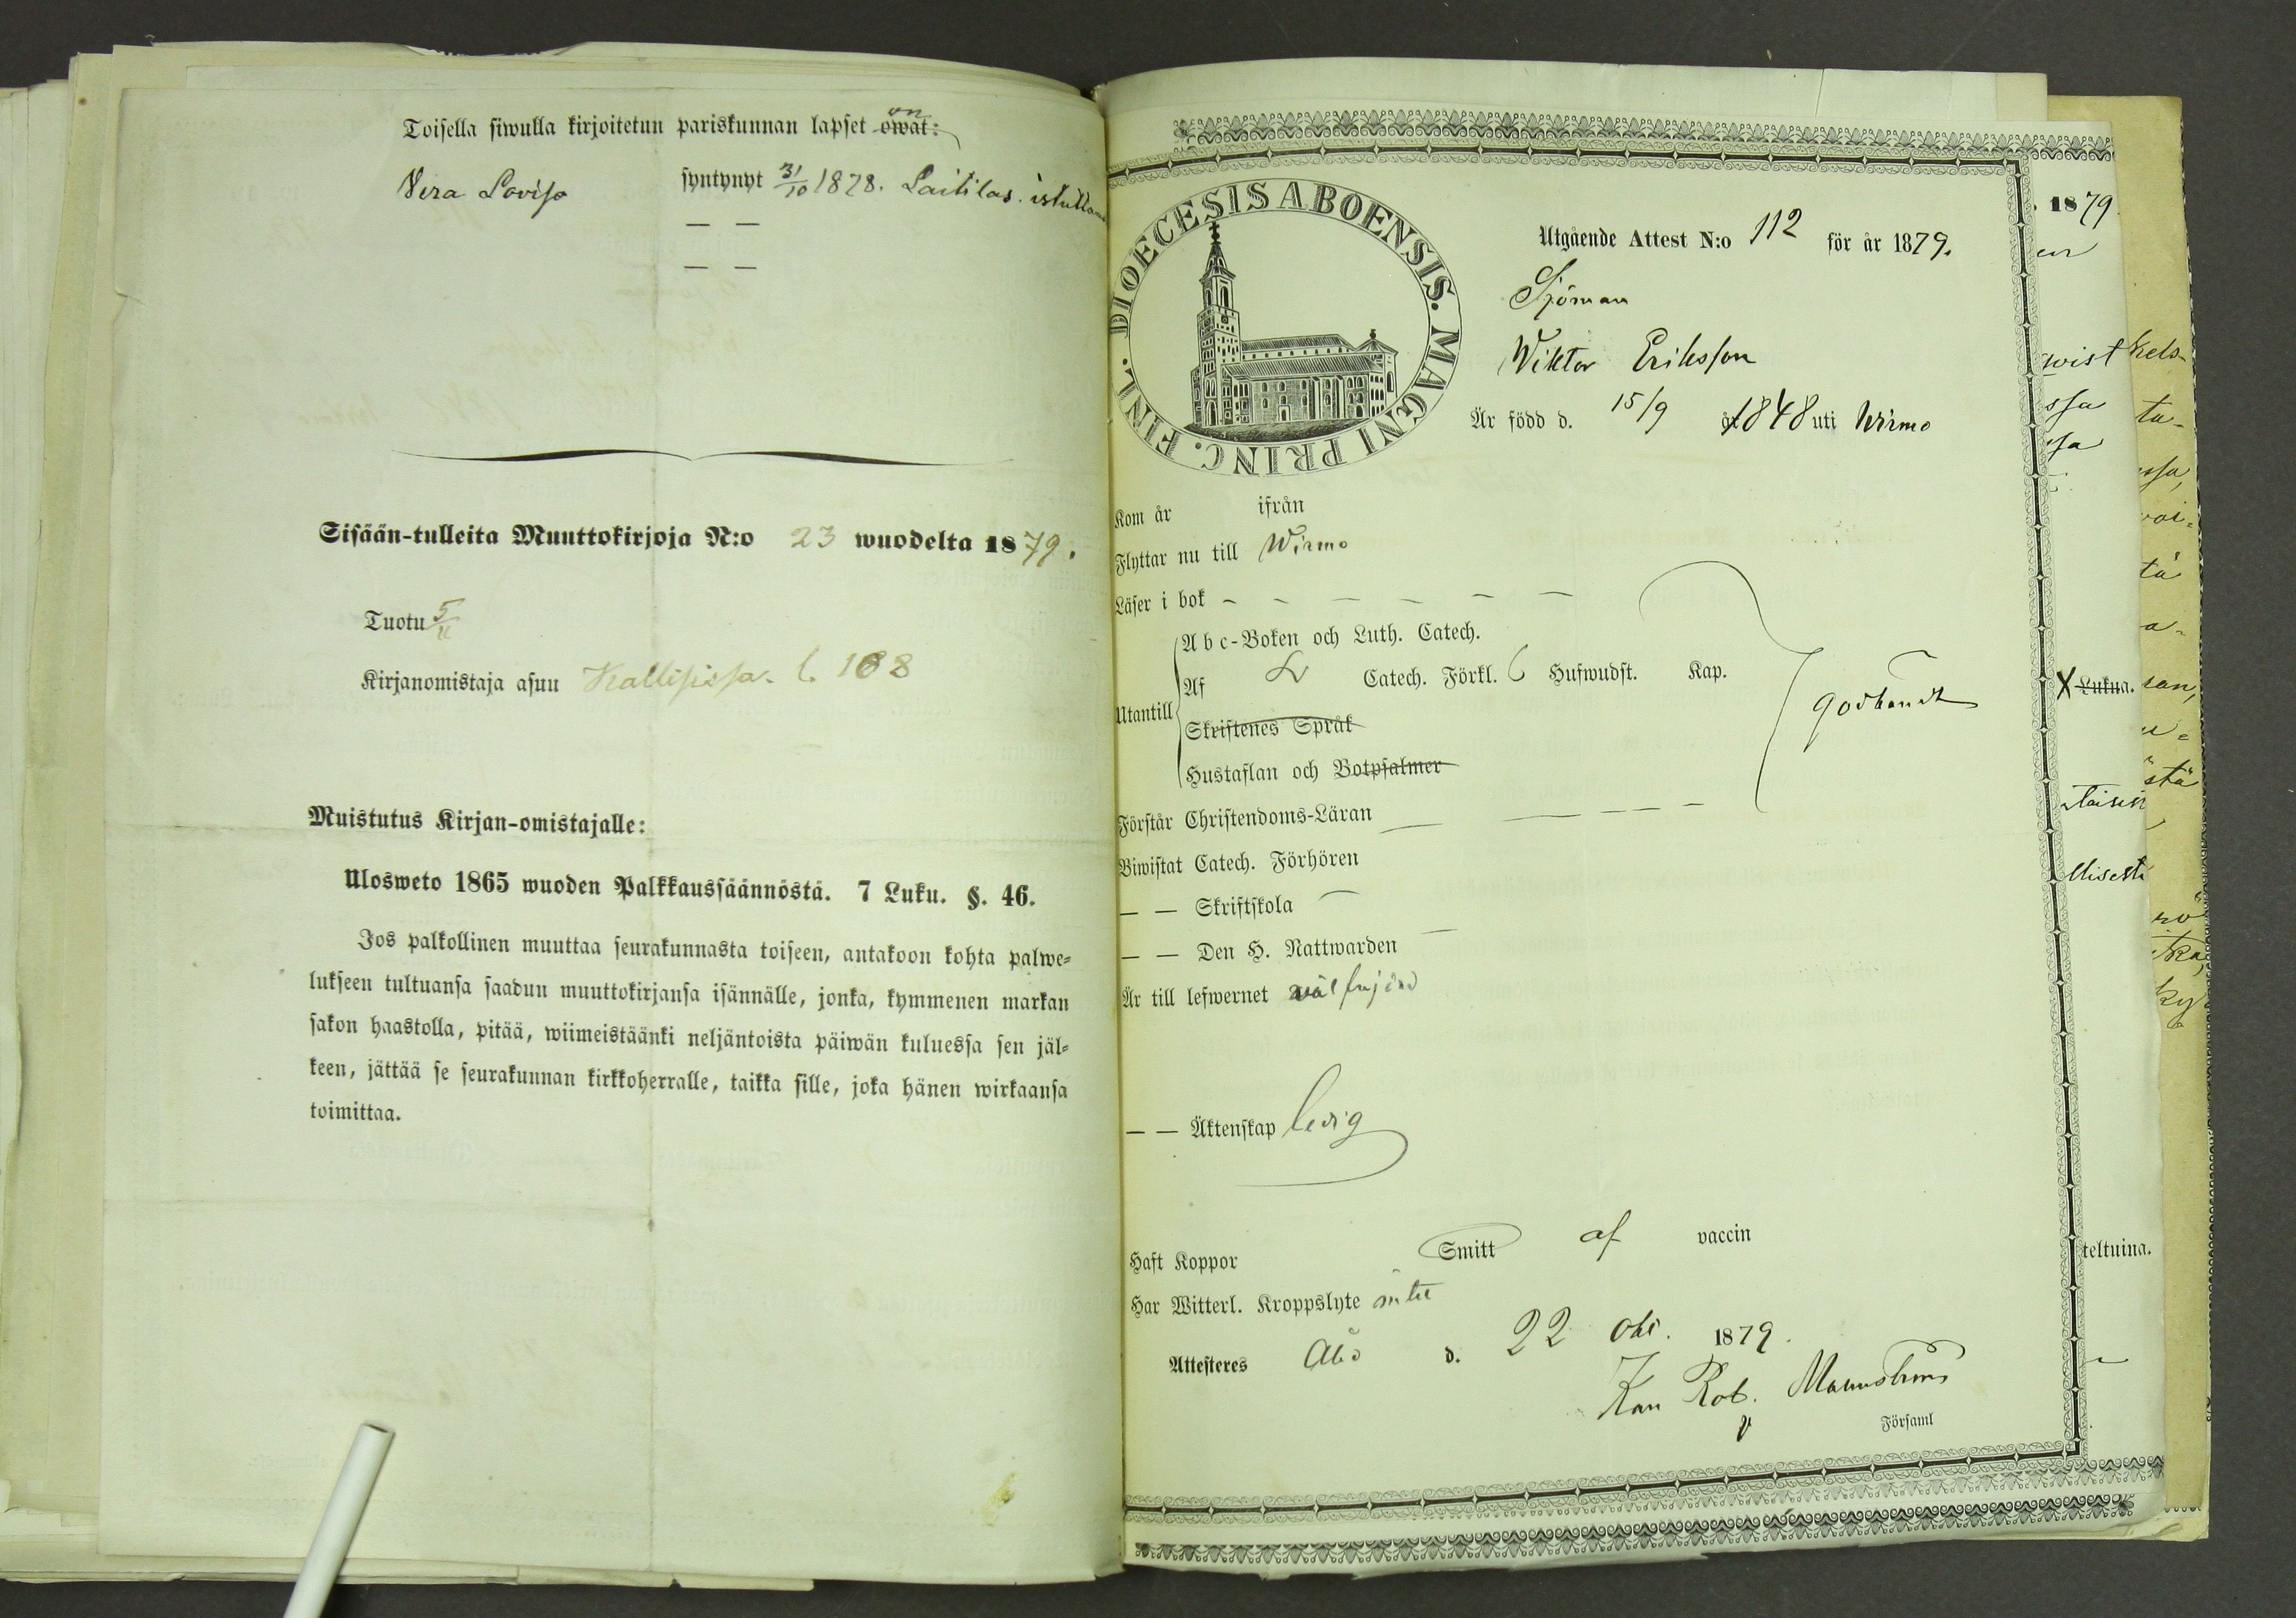 Toisella siwulla kirjoitetun pariskunnan lapset owat: on
Vera Lovisa syntynyt 31/10 1878. Laitilas. istutt
— —
— —
Sisään-tulleita Muuttokirjoja N:o 23 wuodelta 1879.
Tuotu 5/11
Kirjanomistaja asuu Kallisissa. l. 168
Muistutus Kirjan-omistajalle:
Ulosweto 1865 wuoden Palkkaussäännöstä. 7 Luku. §. 46.
Jos palkollinen muuttaa seurakunnasta toiseen, antakoon kohta palwe-
lukseen tultuansa saadun muuttokirjansa isännälle, jonka, kymmenen markan
sakon haastolla, pitää, wiimeistäänki neljäntoista päiwän kuluessa sen jäl-
keen, jättää se seurakunnan kirkkoherralle, taikka sille, joka hänen wirkaansa
toimittaa.
DIOECESIS ABOENSIS. MAGNI PRINC. FINL.
Utgående Attest N:o 112 för år 1879.
Sjöman
Wiktor Eriksson
Är född d. 15/9 år 1848 uti Wirmo
Kom år ifrån
Flyttar nu till Wirmo
Läser i bok – – – – – –
Utantill
Abc-Boken och Luth. Catech.
Af Catech. Förkl. 6 Hufwudst. Kap.
Skriftenes Språk
Hustaflan och Botpsalmer
godkändt
Förstår Christendoms-Läran
Biwistat Catech. Förhören
— — Skriftskola
— — Den H. Nattwarden
Är till lefwernet väl frejdad
— — Äktenskap ledig
Haft Koppor Smitt af vaccin
Har Witterl. Kroppslyte intet
Attesteres Åbo d. 22 Okt. 1879.
Karl Rob. Malmström
v Församl
1879
wist
ssa
Lukua.
llisesti
teltuina.